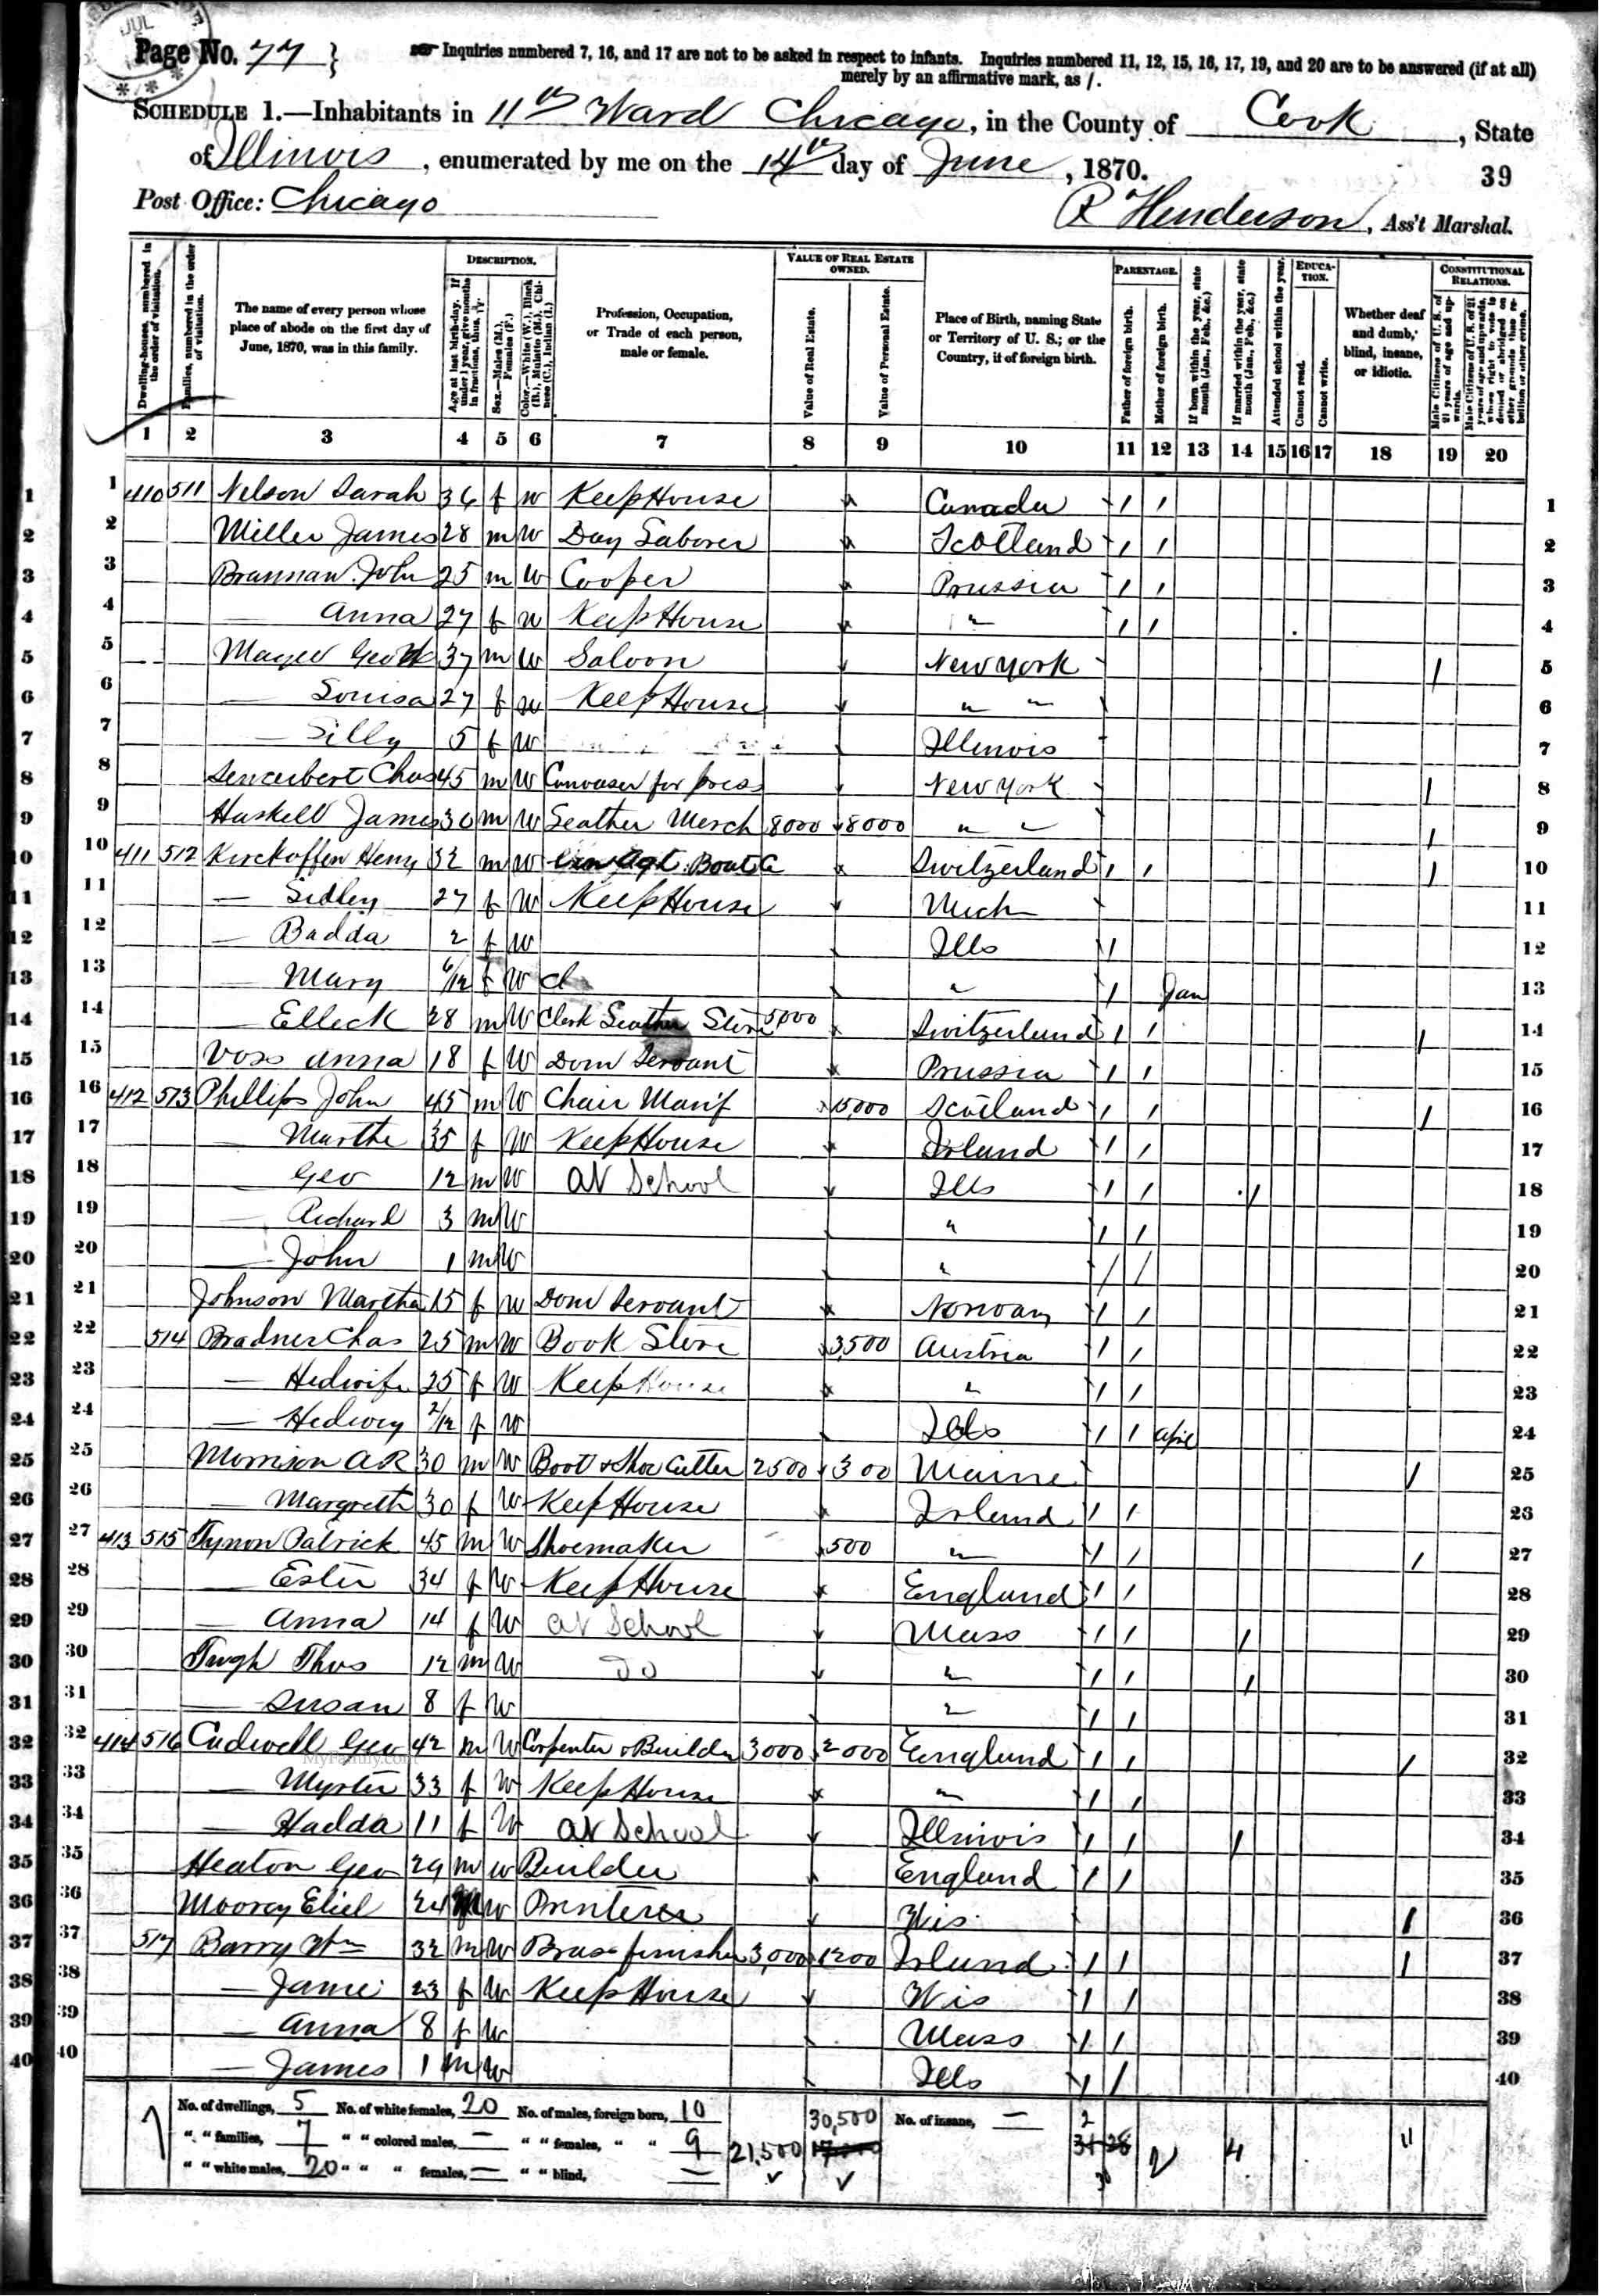 JUL
Page No. 77 }
Inquiries numbered 7, 16, and 17 are not to be asked in respect to infants. Inquiries numbered 11, 12, 15, 16, 17, 19, and 20 are to be answered (if at all)
merely by an affirmative mark, as /.
SCHEDULE 1.—Inhabitants in 11th Ward Chicago, in the County of Cook, State
of Illinois, enumerated by me on the 14th day of June, 1870.
39
Post Office: Chicago
R Henderson, Ass't Marshal.
Dwelling-houses, numbered in the order of visitation.
Families, numbered in the order of visitation.
The name of every person whose place of abode on the first day of June, 1870, was in this family.
DESCRIPTION.
Age at last birth-day. If under 1 year, give months in fractions, thus,
Sex.—Males (M.), Females (F.)
Color.—White (W.), Black (B.), Mulatto (M.), Chinese (C.), Indian (I.)
Profession, Occupation, or Trade of each person, male or female.
VALUE OF REAL ESTATE OWNED.
Value of Real Estate.
Value of Personal Estate.
Place of Birth, naming State or Territory of U. S.; or the Country, if of foreign birth.
PARENTAGE.
Father of foreign birth.
Mother of foreign birth.
If born within the year, state month (Jan., Feb., &c.)
If married within the year, state month (Jan., Feb., &c.)
Attended school within the year.
EDUCATION.
Cannot read.
Cannot write.
Whether deaf and dumb, blind, insane, or idiotic.
CONSTITUTIONAL RELATIONS.
Male Citizens of U. S. of 21 years of age and upwards.
Male Citizens of U. S. of 21 years of age and upwards, whose right to vote is denied or abridged on other grounds than rebellion or other crime.
1 2 3 4 5 6 7 8 9 10 11 12 13 14 15 16 17 18 19 20
1 410 511 Nelson Sarah 36 f w Keep House Canada / / 1
2 Miller James 28 m W Day Laborer Scotland / / 2
3 Brannan John 25 m W Cooper Prussia / / 3
4 — Anna 27 f w Keep House " / / 4
5 37 m W Saloon New York / 5
6 — Louisa 27 f w Keep House " " 6
7 — Lilly 5 f W Illinois 7
8 Chas 45 m W Canvasser for press New York / 8
9 Haskell James 30 m W Leather Merch 8000 8000 " " / 9
10 411 512 Kirckoffen Henry 32 m W Switzerland / / / 10
11 — Sidley 27 f W Keep House Mich 11
12 — Badda 2 f W Ills / 12
13 — Mary 6/12 f W " / Jan 13
14 — Elleck 28 m W Clerk Leather Store 5,000 Switzerland / / / 14
15 Voss Anna 18 f W Dom Servant Prussia / / 15
16 412 513 Phillips John 45 m W Chair Manf 15,000 Scotland / / / 16
17 — Martha 35 f W Keep House Irland / / 17
18 — Geo 12 m W At School Ills / / / 18
19 — Richard 3 m W " / / 19
20 — John 1 m W " / / 20
21 Johnson Martha 15 f W Dom Servant Norway / / 21
22 514 Bradner Chas 25 m W Book Store 3,500 Austria / / 22
23 — Hedwife 25 f W Keep House " / / 23
24 — Hedwey 2/12 f W Ills / / Apil 24
25 Morrison A R 30 m W Boot & Shoe Cutter 2500 300 Maine / 25
26 — Margreth 30 f W Keep House Irland / / 23
27 413 515 Tynon Patrick 45 m W Shoemaker 500 " / / / 27
28 — Ester 34 f W Keep House England / / 28
29 — Anna 14 f W At School Mass / / / 29
30 Thos 12 m W Do " / / / 30
31 — Susan 8 f W " / / 31
32 414 516 Cadwell Geo 42 m W Carpenter & Builder 3000 2000 England / / / 32
MyFamily.com
33 — 33 f W Keep House " / / 33
34 — Hadda 11 f W At School Illinois / / / 34
35 Heaton Geo 29 m w Builder England / / 35
36 Mooray Eliel 24 M w Printer Wis / 36
37 517 Barry Wm 32 m W Brass finisher 3,000 1200 Irland / / / 37
38 — Janie 23 f W Keep House Wis / / 38
39 — Anna 8 f W Mass / / 39
40 — James 1 m W Ills / / 40
No. of dwellings, 5 No. of white females, 20 No. of males, foreign born, 10 30,500 No. of insane, — 2
" " families, 7 " " colored males, — " " females, " " 9 21,500 17,000 31 28 2 4 11
" " white males, 20 " " " females, — " " blind, — 30